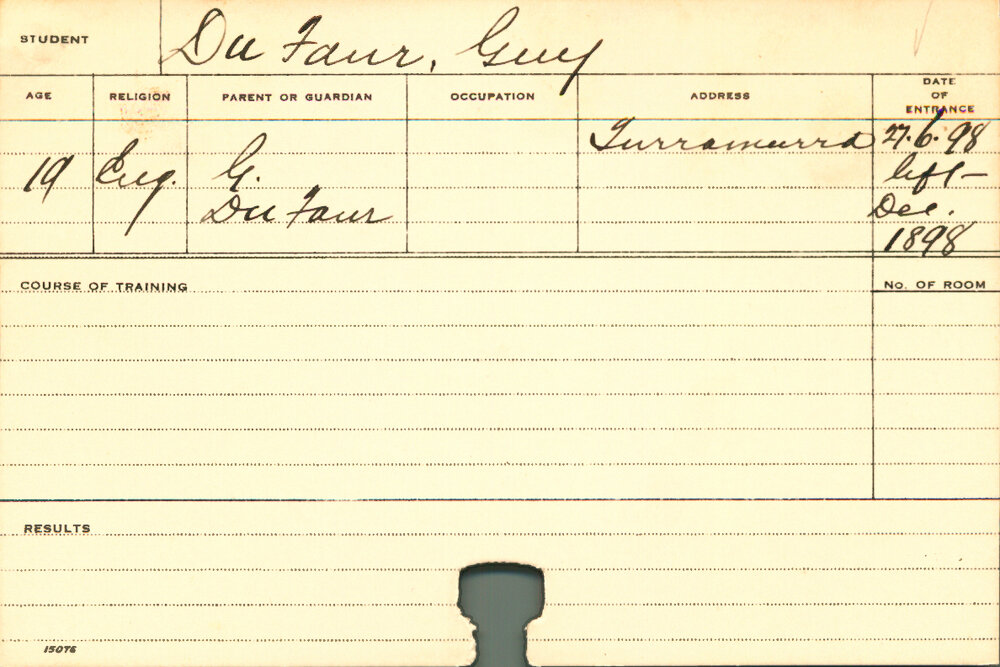 STUDENT Du Faur, Guy
AGE RELIGION PARENT OR GUARDIAN OCCUPATION ADDRESS DATE OF ENTRANCE
Turramurra 27.6.98
19 Eng. G. left-
Du Faur Dec.
1898
COURSE OF TRAINING No. OF ROOM
RESULTS
15076